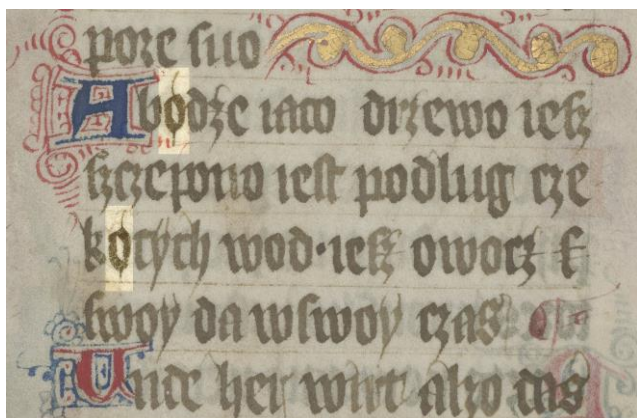 pore suo
A bødze iaco drzewo iesz
szczepono iest podlug cze
køcych wod·iesz owocz
swoy da wswoy czas
Unde her wirt alzo das